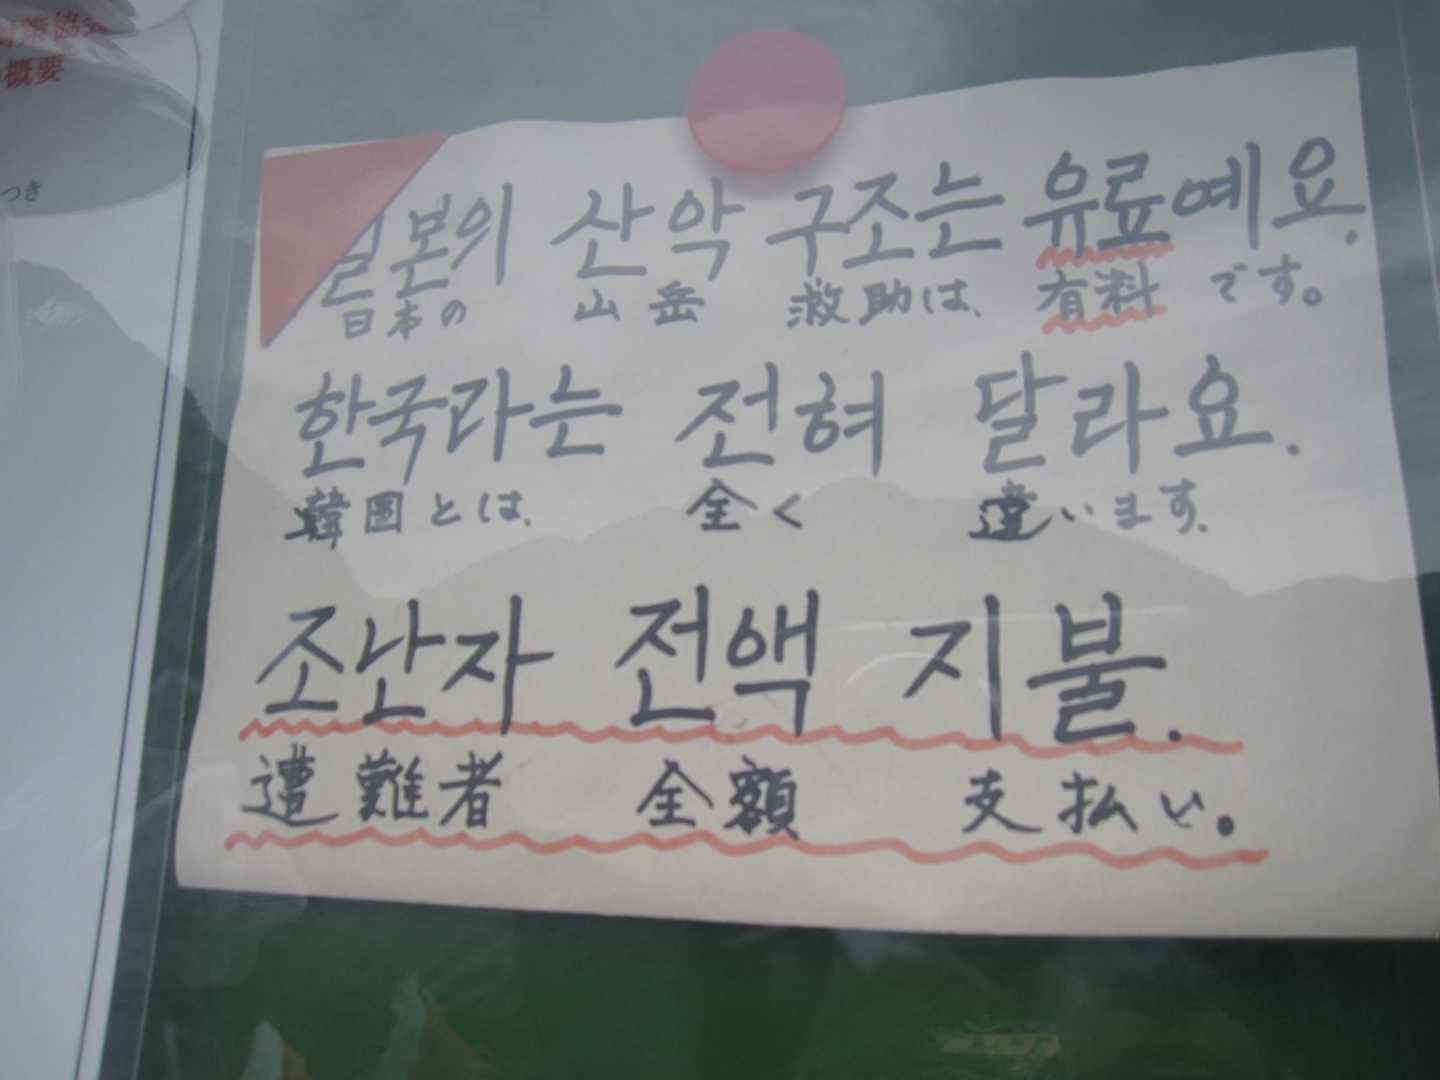 策協会
概要
つき
일본의 산악 구조는 유료예요.
日本の 山岳 救助は、有料です。
한국라는 전혀 달라요.
韓国とは、全く 違います。
조난자 전액 지불.
遭難者 全額 支払い.